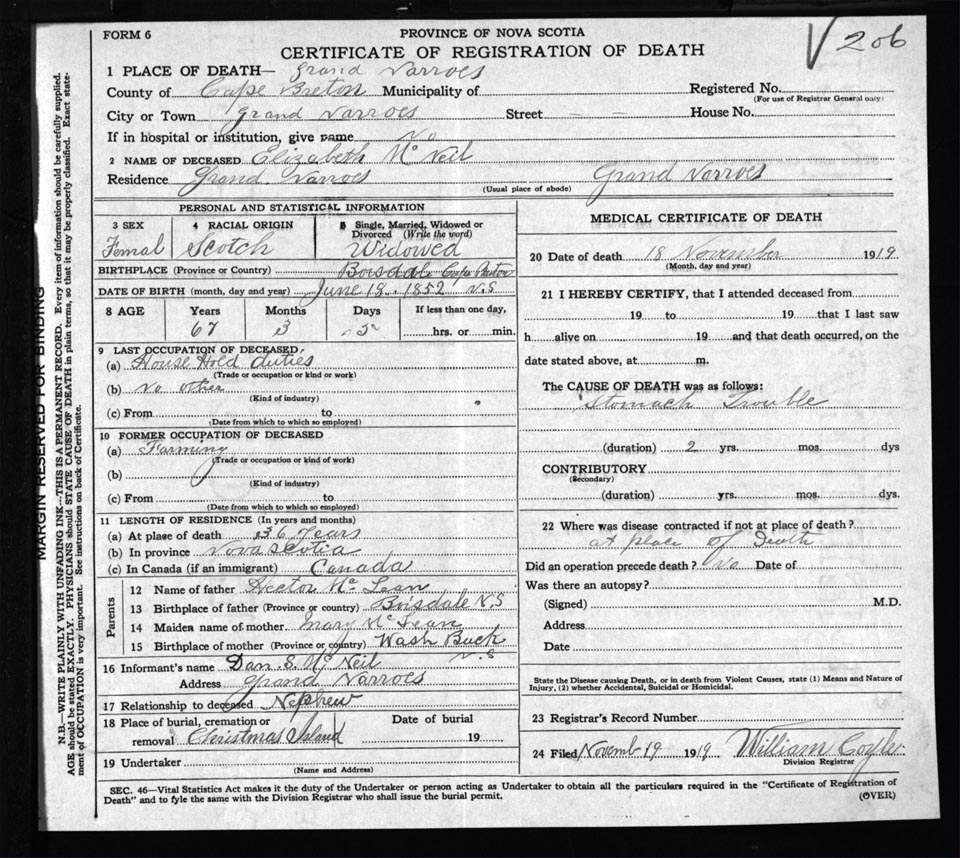 FORM 6
PROVINCE OF NOVA SCOTIA
CERTIFICATE OF REGISTRATION OF DEATH
V 206
1 PLACE OF DEATH— Grand Narrows
County of Cape Breton Municipality of
Registered No.
(For use of Registrar General only)
City or Town Grand Narrows Street — — House No.
If in hospital or institution, give name No
2 NAME OF DECEASED Elizabeth McNeil
Residence Grand Narrows (Usual place of abode) Grand Narrows
PERSONAL AND STATISTICAL INFORMATION
3 SEX Femal
4 RACIAL ORIGIN Scotch
5 Single, Married, Widowed or Divorced (Write the word)
Widowed
BIRTHPLACE (Province or Country) Boisdale Cape Breton
DATE OF BIRTH (month, day and year) June 18. 1852 N.S
8 AGE Years Months Days If less than one day,
67 3 5 hrs. or min.
9 LAST OCCUPATION OF DECEASED
(a) House Hold duties
(Trade or occupation or kind or work)
(b) No other
(Kind of industry)
(c) From to
(Date from which to which so employed)
10 FORMER OCCUPATION OF DECEASED
(a) Farming
(Trade or occupation or kind of work)
(b)
(Kind of industry)
(c) From to
(Date from which to which so employed)
11 LENGTH OF RESIDENCE (In years and months)
(a) At place of death 36 Years
(b) In province Nova Scotia
(c) In Canada (if an immigrant) Canada
Parents
12 Name of father Hector McLean
13 Birthplace of father (Province or country) Boisdale N.S
14 Maiden name of mother Mary McLean
15 Birthplace of mother (Province or country) Wash Buck
N.S
16 Informant's name Dan. S. McNeil
Address Grand Narrows
17 Relationship to deceased Nephew
18 Place of burial, cremation or removal Christmas Island
Date of burial 19
19 Undertaker
(Name and Address)
MEDICAL CERTIFICATE OF DEATH
20 Date of death 18 November 1919
(Month, day and year)
21 I HEREBY CERTIFY, that I attended deceased from
19 to 19 that I last saw
h alive on 19 and that death occurred, on the
date stated above, at m.
The CAUSE OF DEATH was as follows:
Stomach Trouble
(duration) 2 yrs. mos. dys
CONTRIBUTORY
(Secondary)
(duration) yrs. mos. dys.
22 Where was disease contracted if not at place of death?
at place of Death
Did an operation precede death? No Date of
Was there an autopsy?
(Signed) M.D.
Address
Date
State the Disease causing Death, or in death from Violent Causes, state (1) Means and Nature of
Injury, (2) whether Accidental, Suicidal or Homicidal.
23 Registrar's Record Number
24 Filed Novemb 19 1919 William Coyle
Division Registrar
SEC. 46—Vital Statistics Act makes it the duty of the Undertaker or person acting as Undertaker to obtain all the particulars required in the "Certificate of Registration of
Death" and to fyle the same with the Division Registrar who shall issue the burial permit.
(OVER)
MARGIN RESERVED FOR BINDING
N.B.—WRITE PLAINLY WITH UNFADING INK—THIS IS A PERMANENT RECORD. Every item of information should be carefully supplied.
AGE should be stated EXACTLY. PHYSICIANS should STATE CAUSE OF DEATH in plain terms, so that it may be properly classified. Exact state-
ment of OCCUPATION is very important. See instructions on back of Certificate.